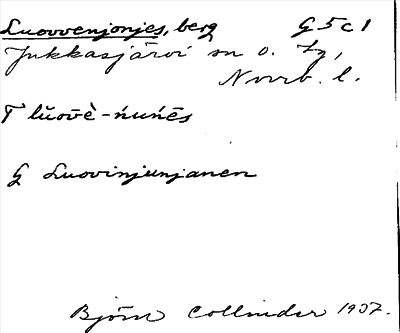 Luovvenjonjes, berg G5c1
Jukkasjärvi sn o. tg,
Norrb. l.
T lŭov̄è-ńuńēs
G Luovinjunjanen
Björn Collinder 1937.